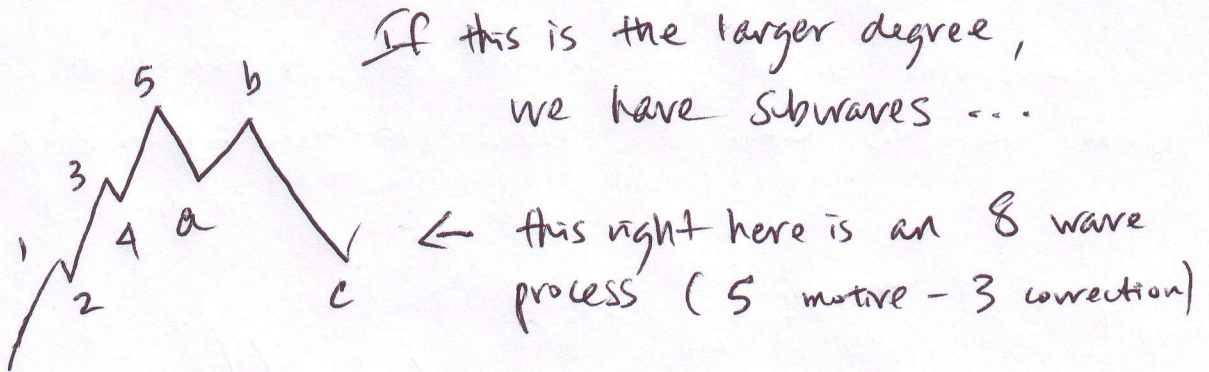 If this is the larger degree,
we have subwaves ...
5 b
3
4 a
1
2 c
← this right here is an 8 wave
process ( 5 motive - 3 correction)